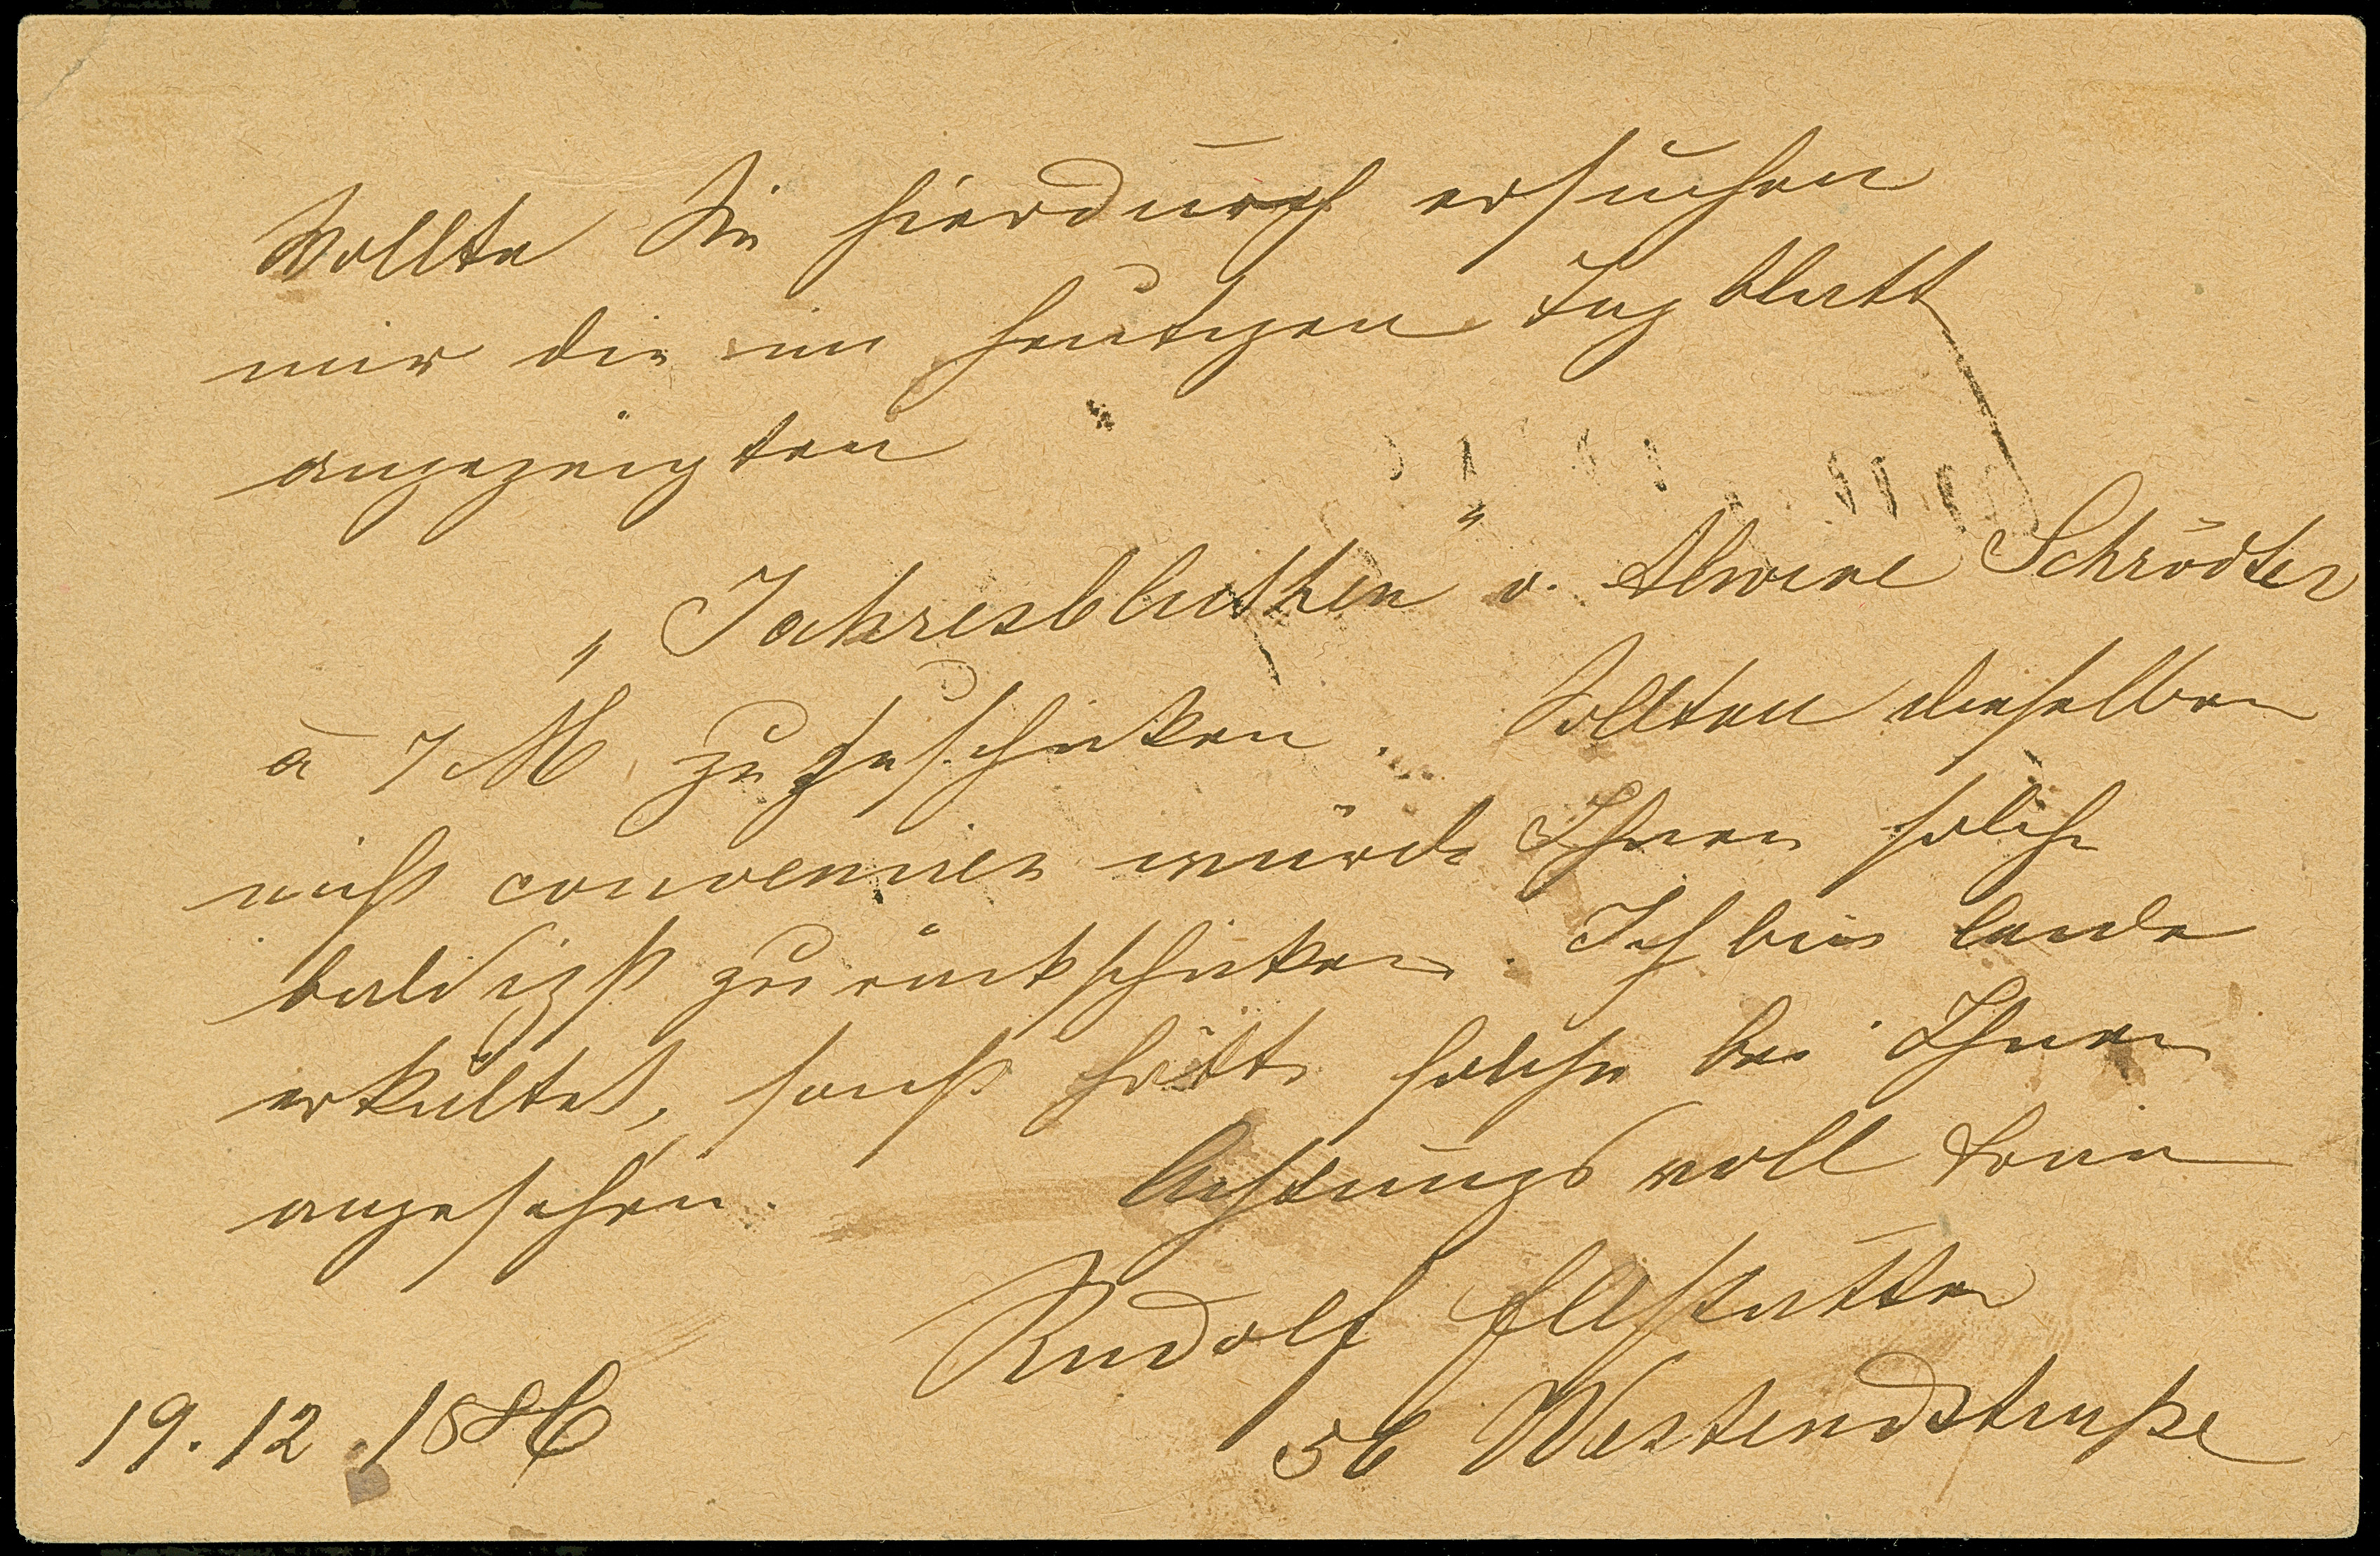 Wollte Sie hierdurch ersuchen
mir die im heutigen Tagblatt
angezeigten
„Jahresblüthen" v. Alwine Schrödter
à 7 M, zuzuschicken. Sollten dieselben
nicht convenieren würde Ihnen solche
baldigst zurückschicken. Ich bin leider
erkältet, sonst hätte solche bei Ihnen
angesehen. Achtungsvoll
Rudolf
56 Westendstraße
19.12.1886